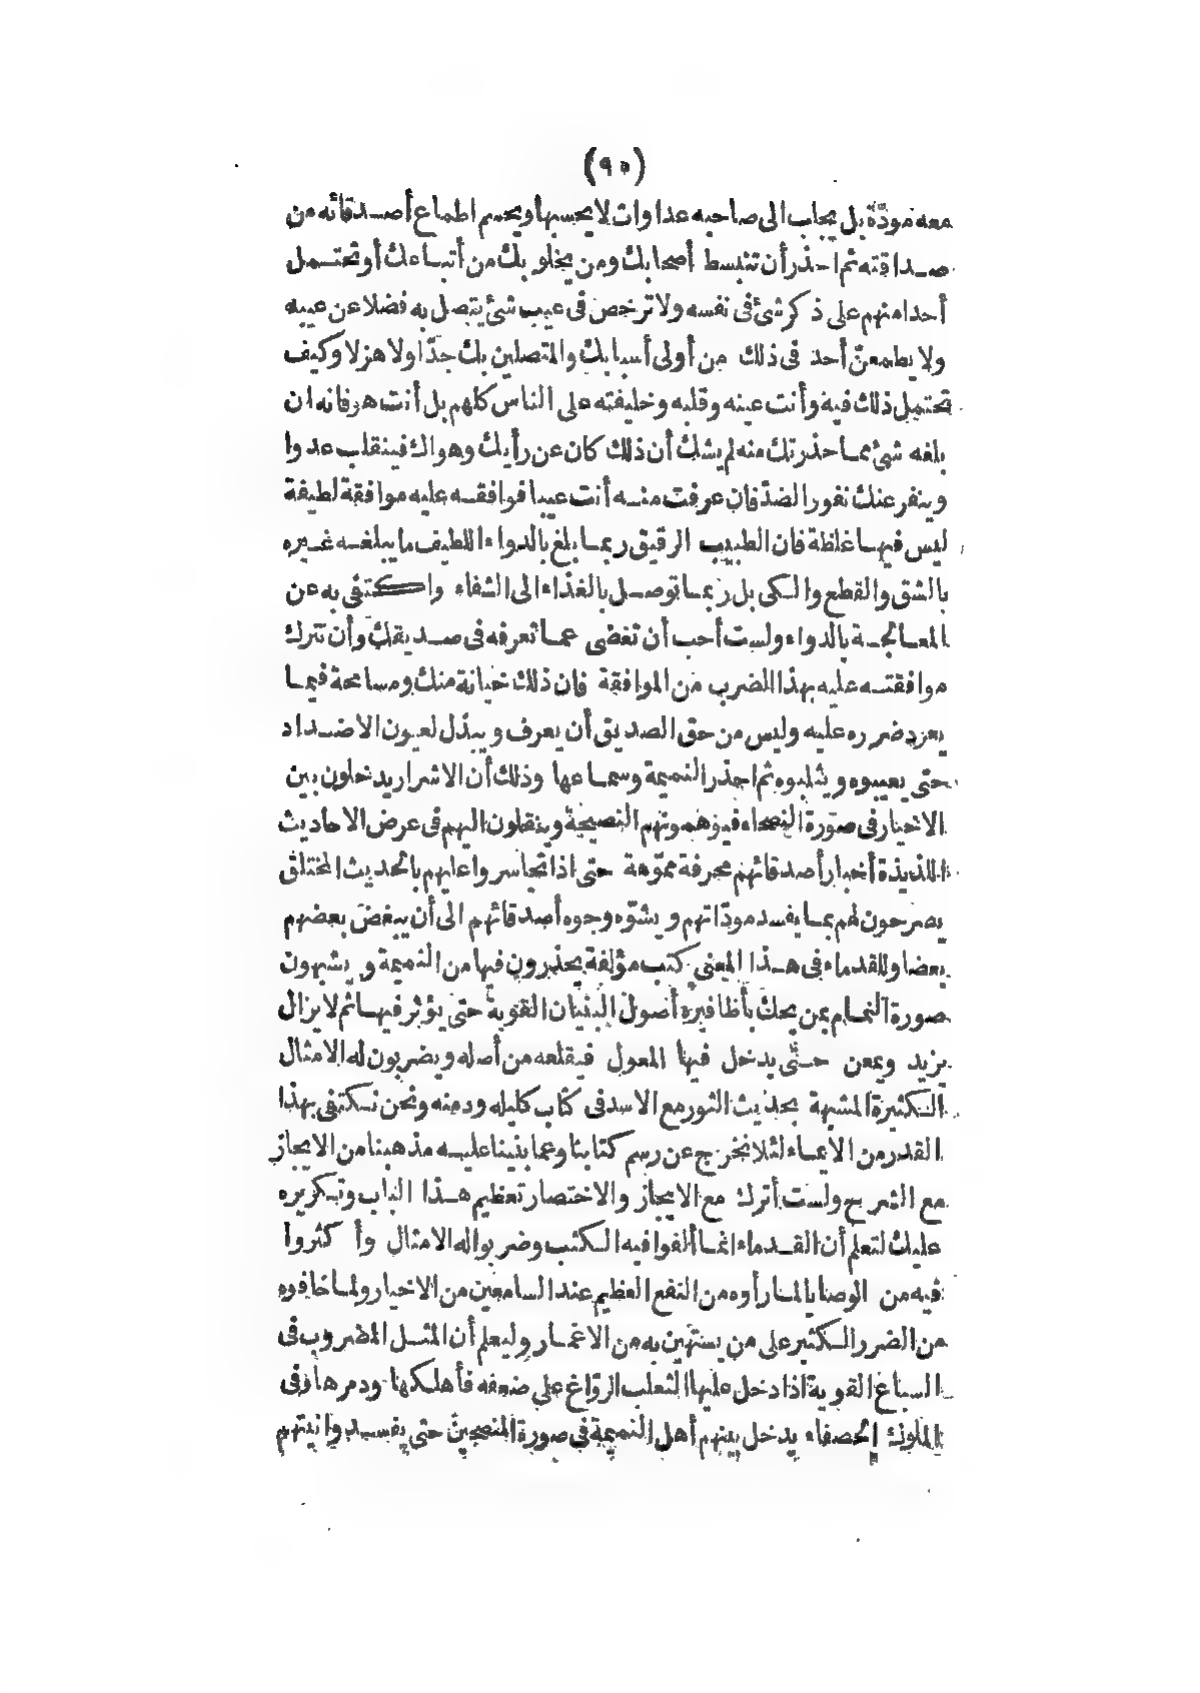 (٩٥)
معه مودّة بل يجلب الى صاحبه عداوات لا يحسبها ويحسم اطماع أصدقائه من
صداقته ثم احذر أن تنبسط أصحابك ومن يخلو بك من أتباعك أو تحتمل
أحدا منهم على ذكر شئ فى نفسه ولا ترخص فى عيب شئ يتصل به فضلا عن عيبه
ولا يطمعنّ أحد فى ذلك من أولى أسبابك والمتصلين بك جدّا ولا هزلا وكيف
تحتمل ذلك فيه وأنت عينه وقلبه وخليفته على الناس كلهم بل أنت هو فانه ان
بلغه شئ مما حذرتك منه لم يشك أن ذلك كان عن رأيك وهواك فينقلب عدوا
وينفر عنك نفور الضدّ فان عرفت منه أنت عيبا فوافقه عليه موافقة لطيفة
ليس فيها غلظة فان الطبيب الرفيق ربما بلغ بالدواء اللطيف ما يبلغه غيره
بالشق والقطع والكى بل ربما توصل بالغذاء الى الشفاء واكتفى به عن
المعالجة بالدواء ولست أحب أن تغضى عما تعرفه فى صديقك وأن تترك
موافقته عليه بهذا الضرب من الموافقة فان ذلك خيانة منك ومسامحة فيما
يعود ضرره عليه وليس من حق الصديق أن يعرف ويبذل لعيون الاضداد
حتى يعيبوه ويثلبوه ثم احذر النميمة وسماعها وذلك أن الاشرار يدخلون بين
الاخيار فى صورة النصحاء فيوهمونهم النصيحة وينقلون اليهم فى عرض الاحاديث
اللذيذة أخبار أصدقائهم محرفة مموّهة حتى اذا تجاسروا عليهم بالحديث المختلق
يصرحون لهم بما يفسد مودّاتهم ويشوّه وجوه أصدقائهم الى أن يبغض بعضهم
بعضا وللقدماء فى هذا المعنى كتب مؤلفة يحذرون فيها من النميمة ويشبهون
صورة النمام بمن يحك بأظافيره أصول البنيان القوية حتى يؤثر فيها ثم لا يزال
يزيد ويمعن حتى يدخل فيها المعول فيقلعه من أصله ويضربون له الامثال
الكثيرة المشبهة بحديث الثور مع الاسد فى كتاب كليله ودمنه ونحن نكتفى بهذا
القدر من الايماء لئلا نخرج عن رسم كتابنا وعما بنينا عليه مذهبنا من الايجاز
مع الشرح ولست أترك مع الايجاز والاختصار تعظيم هذا الباب وتكريره
عليك لتعلم أن القدماء انما ألفوا فيه الكتب وضربوا له الامثال وأكثروا
فيه من الوصايا لما رأوه من النفع العظيم عند السامعين من الاخيار ولما خافوه
من الضرر الكثير على من يستهين به من الاغمار وليعلم أن المثل المضروب فى
السباع القوية اذا دخل عليها الثعلب الروّاغ على ضعفه فأهلكها ودمرها وفى
الملوك الحصفاء يدخل بينهم أهل النميمة فى صورة المنصحين حتى يفسدوا نيتهم